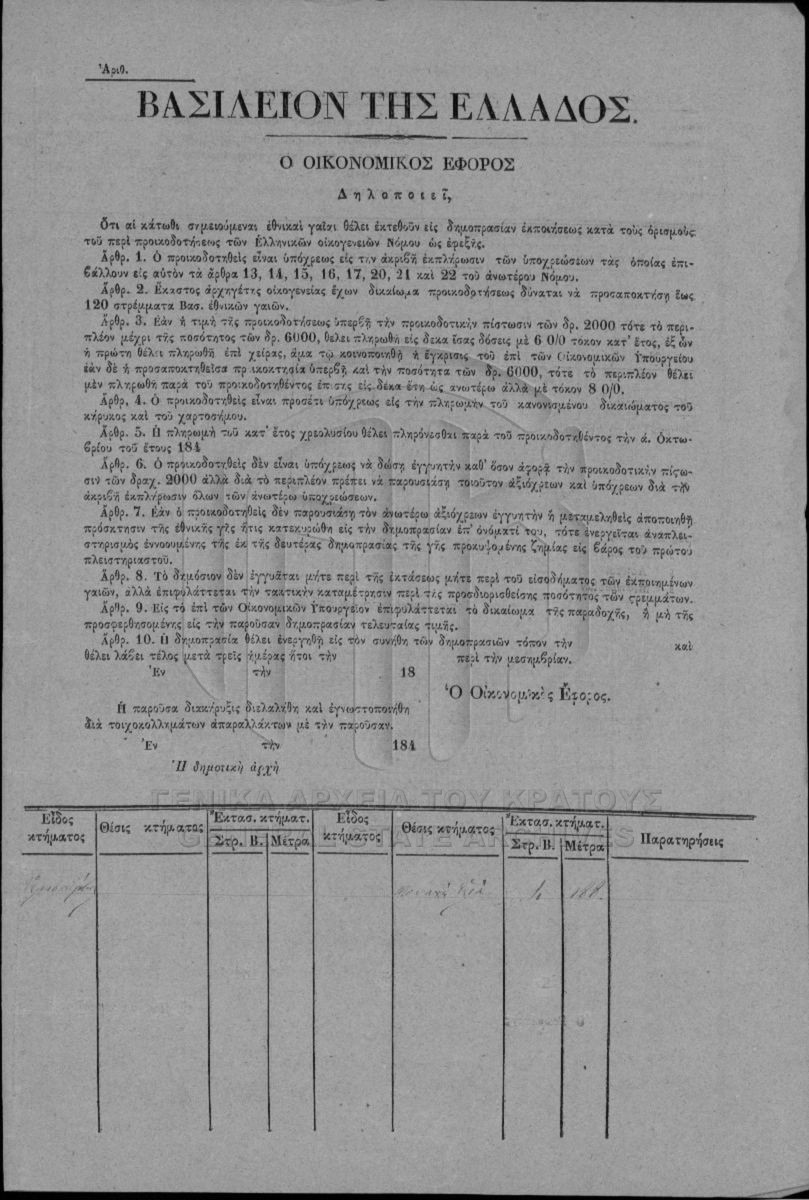 Ἀριθ.
ΒΑΣΙΛΕΙΟΝ ΤΗΣ ΕΛΛΑΔΟΣ.
Ο ΟΙΚΟΝΟΜΙΚΟΣ ΕΦΟΡΟΣ
Δηλοποιεῖ,
Ὅτι αἱ κάτωθι σημειούμεναι ἐθνικαὶ γαῖαι θέλει ἐκτεθοῦν εἰς δημοπρασίαν ἐκποιήσεως κατὰ τοὺς ὁρισμοὺς
τοῦ περὶ προικοδοτήσεως τῶν Ἑλληνικῶν οἰκογενειῶν Νόμου ὡς ἐφεξῆς.
Ἄρθρ. 1. Ὁ προικοδοτηθεὶς εἶναι ὑπόχρεως εἰς τὴν ἀκριβῆ ἐκπλήρωσιν τῶν ὑποχρεώσεων τὰς ὁποίας ἐπι-
βάλλουν εἰς αὐτὸν τὰ ἄρθρα 13, 14, 15, 16, 17, 20, 21 καὶ 22 τοῦ ἀνωτέρου Νόμου.
Ἄρθρ. 2. Ἕκαστος ἀρχηγέτης οἰκογενείας ἔχων δικαίωμα προικοδοτήσεως δύναται νὰ προσαποκτήσῃ ἕως
120 στρέμματα Βασ. ἐθνικῶν γαιῶν.
Ἄρθρ. 3. Ἐὰν ἡ τιμὴ τῆς προικοδοτήσεως ὑπερβῇ τὴν προικοδοτικὴν πίστωσιν τῶν δρ. 2000 τότε τὸ περι-
πλέον μέχρι τῆς ποσότητος τῶν δρ. 6000, θέλει πληρωθῆ εἰς δέκα ἴσας δόσεις μὲ 6 0/0 τόκον κατ' ἔτος, ἐξ ὧν
ἡ πρώτη θέλει πληρωθῆ ἐπὶ χεῖρας, ἅμα τῷ κοινοποιηθῇ ἡ ἔγκρισις τοῦ ἐπὶ τῶν Οἰκονομικῶν Ὑπουργείου
ἐὰν δὲ ἡ προσαποκτηθεῖσα πρ ικοκτησία ὑπερβῇ καὶ τὴν ποσότητα τῶν δρ. 6000, τότε τὸ περιπλέον θέλει
μὲν πληρωθῆ παρὰ τοῦ προικοδοτηθέντος ἐπίσης εἰς δέκα ἔτη ὡς ἀνωτέρω ἀλλὰ μὲ τόκον 8 0/0.
Ἄρθρ, 4. Ὁ προικοδοτηθεὶς εἶναι προσέτι ὑπόχρεως εἰς τὴν πληρωμὴν τοῦ κανονισμένου δικαιώματος τοῦ
κήρυκος καὶ τοῦ χαρτοσήμου.
Ἄρθρ. 5. Ἡ πληρωμὴ τοῦ κατ' ἔτος χρεολυσίου θέλει πληρόνεσθαι παρὰ τοῦ προικοδοτηθέντος τὴν ά. Ὀκτω-
βρίου τοῦ ἔτους 184
Ἄρθρ. 6. Ὁ προικοδοτηθεὶς δὲν εἶναι ὑπόχρεως νὰ δώσῃ ἐγγυητὴν καθ' ὅσον ἀφορᾷ τὴν προικοδοτικὴν πίστω-
σιν τῶν δραχ. 2000 ἀλλὰ διὰ τὸ περιπλέον πρέπει νὰ παρουσιάσῃ τοιοῦτον ἀξιόχρεων καὶ ὑπόχρεων διὰ τὴν
ἀκριβῆ ἐκπλήρωσιν ὅλων τῶν ἀνωτέρω ὑποχρεώσεων.
Ἄρθρ. 7. Ἐὰν ὁ προικοδοτηθεὶς δὲν παρουσιάσῃ τὸν ἀνωτέρω ἀξιόχρεων ἐγγυητὴν ἢ μεταμεληθεὶς ἀποποιηθῇ
πρόσκτησιν τῆς ἐθνικῆς γῆς ἥτις κατεκυρώθη εἰς τὴν δημοπρασίαν ἐπ' ὀνόματί του, τότε ἐνεργεῖται ἀναπλει-
στηρισμὸς ἐννοουμένης τῆς ἐκ τῆς δευτέρας δημοπρασίας τῆς γῆς προκυψομένης ζημίας εἰς βάρος τοῦ πρώτου
πλειστηριαστοῦ.
Ἄρθρ. 8. Τὸ δημόσιον δὲν ἐγγυᾶται μήτε περὶ τῆς ἐκτάσεως μήτε περὶ τοῦ εἰσοδήματος τῶν ἐκποιημένων
γαιῶν, ἀλλὰ ἐπιφυλάττεται τὴν τακτικὴν καταμέτρησιν περὶ τῆς προσδιορισθείσης ποσότητος τῶν στρεμμάτων.
Ἄρθρ. 9. Εἰς τὸ ἐπὶ τῶν Οἰκονομικῶν Ὑπουργεῖον ἐπιφυλάττεται τὸ δικαίωμα τῆς παραδοχῆς, ἢ μὴ τῆς
προσφερθησομένης εἰς τὴν παροῦσαν δημοπρασίαν τελευταίας τιμῆς.
Ἄρθρ. 10. Ἡ δημοπρασία θέλει ἐνεργηθῆ εἰς τὸν συνήθη τῶν δημοπρασιῶν τόπον τὴν καὶ
θέλει λάβει τέλος μετὰ τρεῖς ἡμέρας ἤτοι τὴν περὶ τὴν μεσημβρίαν.
Ἐν τὴν 18
Ὁ Οἰκονομικὸς Ἔφορος.
Ἡ παροῦσα διακήρυξις διελαλήθη καὶ ἐγνωστοποιήθη
διὰ τοιχοκολλημάτων ἀπαραλλάκτων μὲ τὴν παροῦσαν.
Ἐν τὴν 184
Ἡ δημοτικὴ ἀρχὴ
ΓΕΝΙΚΑ ΑΡΧΕΙΑ ΤΟΥ ΚΡΑΤΟΥΣ
Εἶδος κτήματος Θέσις κτήματος Ἔκτασ. κτήματ. Εἶδος κτήματος Θέσις κτήματος Ἔκτασ. κτήματ. Παρατηρήσεις
Στρ. Β. Μέτρα Στρ. Β. Μέτρα